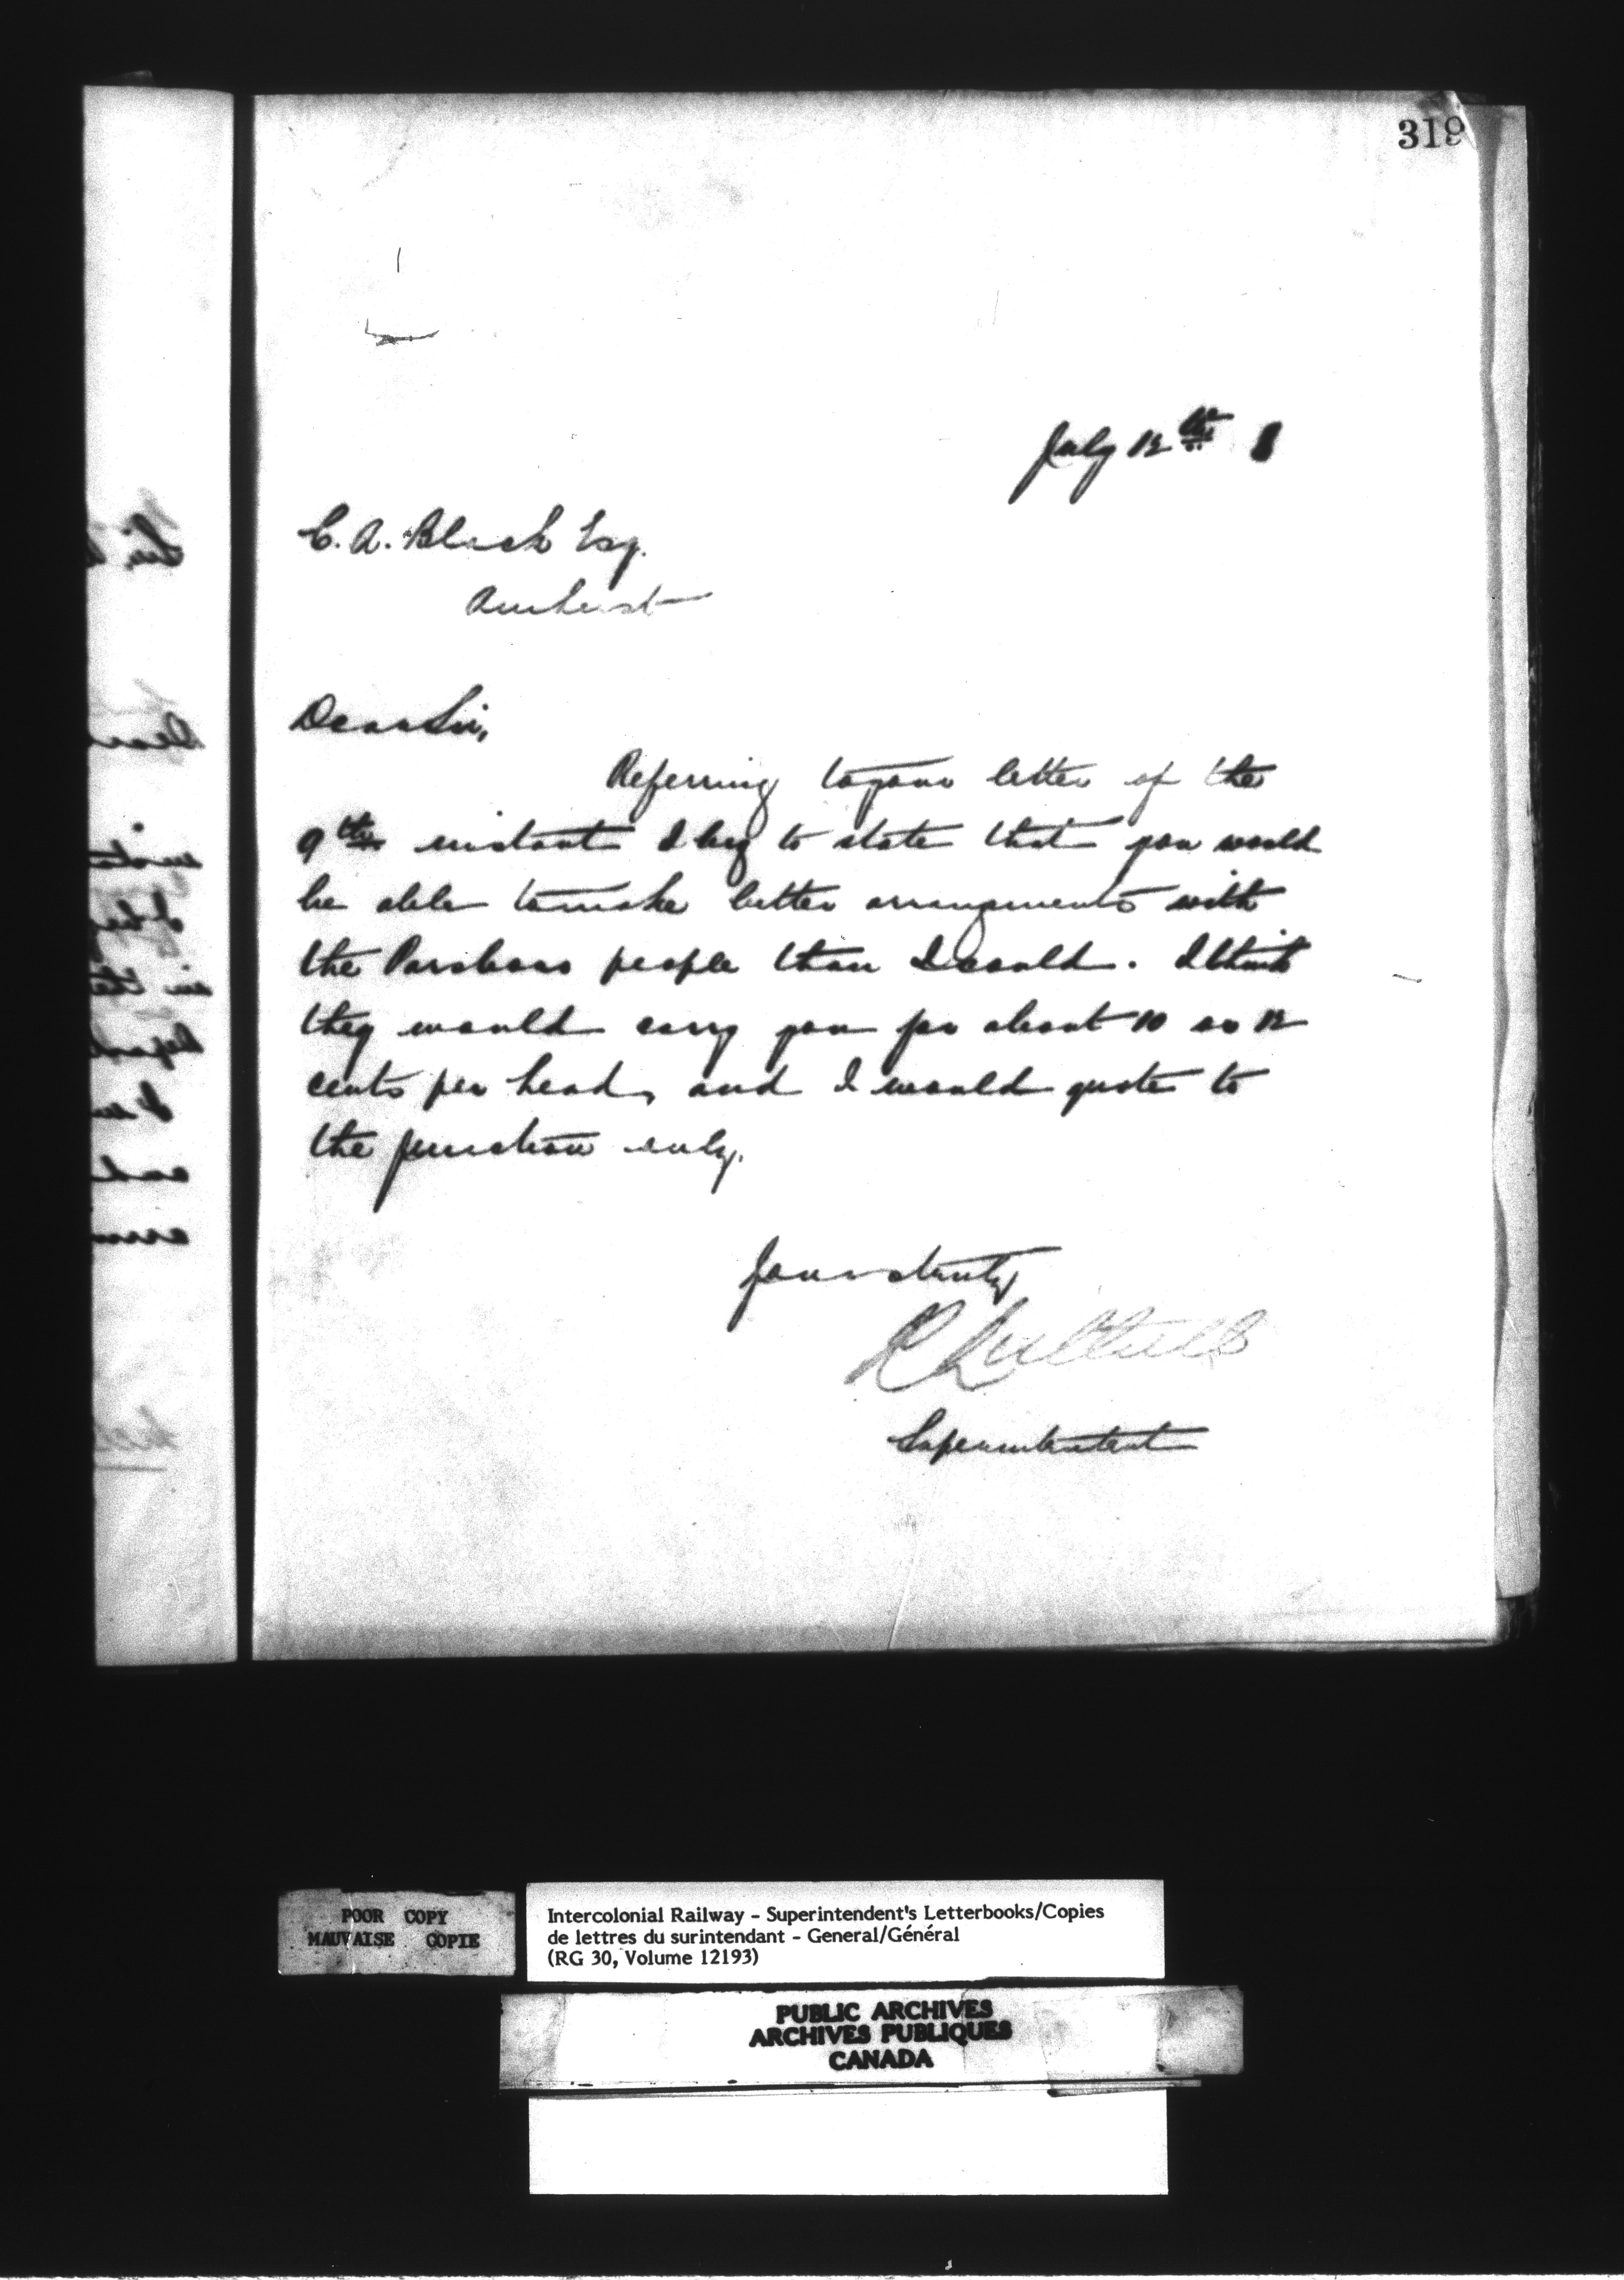 319
July 12th 1
C. A. Black Esq.
Amherst
Dear Sir,
Referring to your letter of the
9th instant I beg to state that you would
be able to make better arrangements with
the Parsboro people than I could. I think
they would carry you for about 10 or 12
cents per head, and I would quote to
the junction only.
Yours truly
Superintendent
POOR COPY
MAUVAISE COPIE
Intercolonial Railway - Superintendent's Letterbooks/Copies
de lettres du surintendant - General/Général
(RG 30, Volume 12193)
PUBLIC ARCHIVES
ARCHIVES PUBLIQUES
CANADA